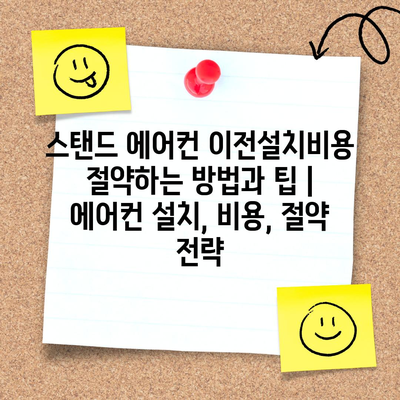 스탠드 에어컨 이전설치비용
절약하는 방법과 팁 |
에어컨 설치, 비용, 절약
전략